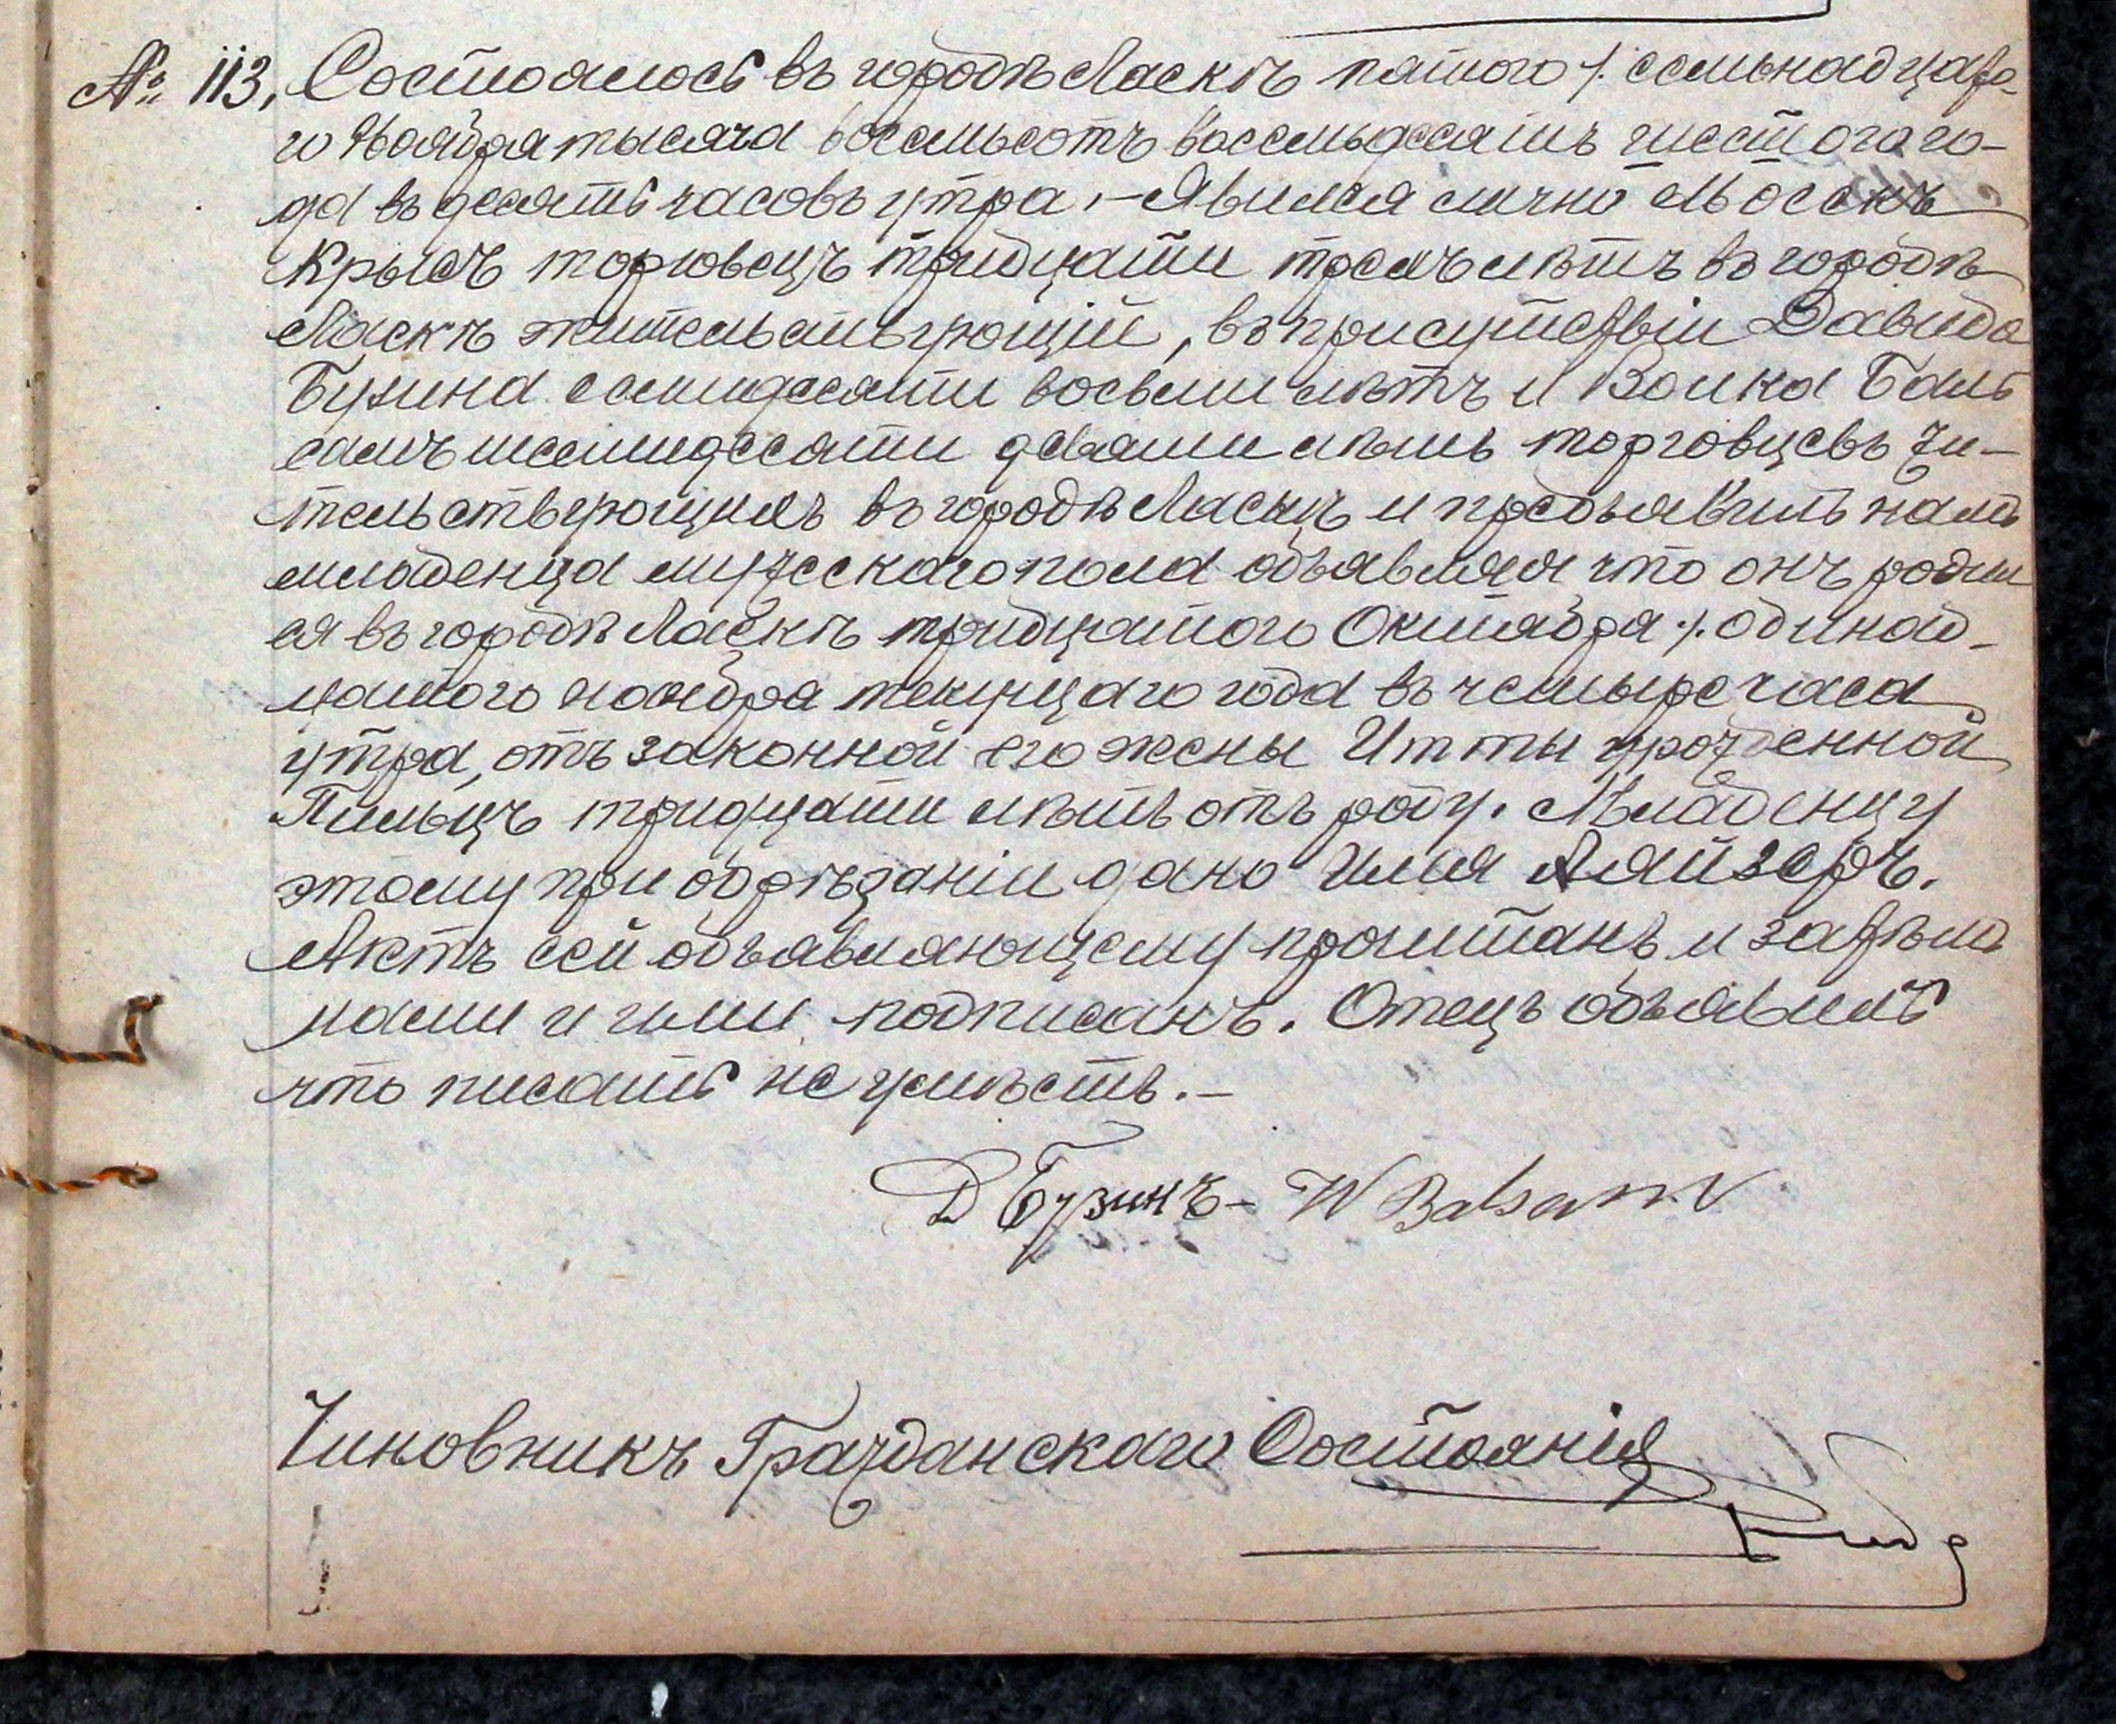 № 113, Состоялось въ городѣ Ласкѣ пятого /. семьнадцато-
го Ноября тысяча восемьсотъ восемьдесятъ шестого го-
да въ десять часовъ утра. – Явился лично Мосекъ
Крысъ торговецъ тридцати трехъ лѣтъ въ городѣ
Ласкѣ жительствующій, въ присутствіи Давида
Бузина семидесяти восьми лѣтъ и Волка Баль
самъ шестидесяти девяти лѣтъ торговцевъ жи-
тельствующихъ въ городѣ Ласкѣ и предъявилъ намъ
младенца мужескаго пола объявляя что онъ родил
ся въ городѣ Ласкѣ тридцатого Октября /. одинад-
цатого ноября текущаго года въ четыре часа
утра, отъ законной его жены Итты урожденной
Пильцъ тридцати лѣтъ отъ роду. Младенцу
этому при обрѣзаніи дано имя Ляйзеръ.
Актъ сей объявляющему прочитанъ и затѣмъ
нами и ими подписанъ. Отецъ объявилъ
что писать не умѣетъ. –
Д Бузинъ – W Balsam
Чиновникъ Гражданскаго Состоянія